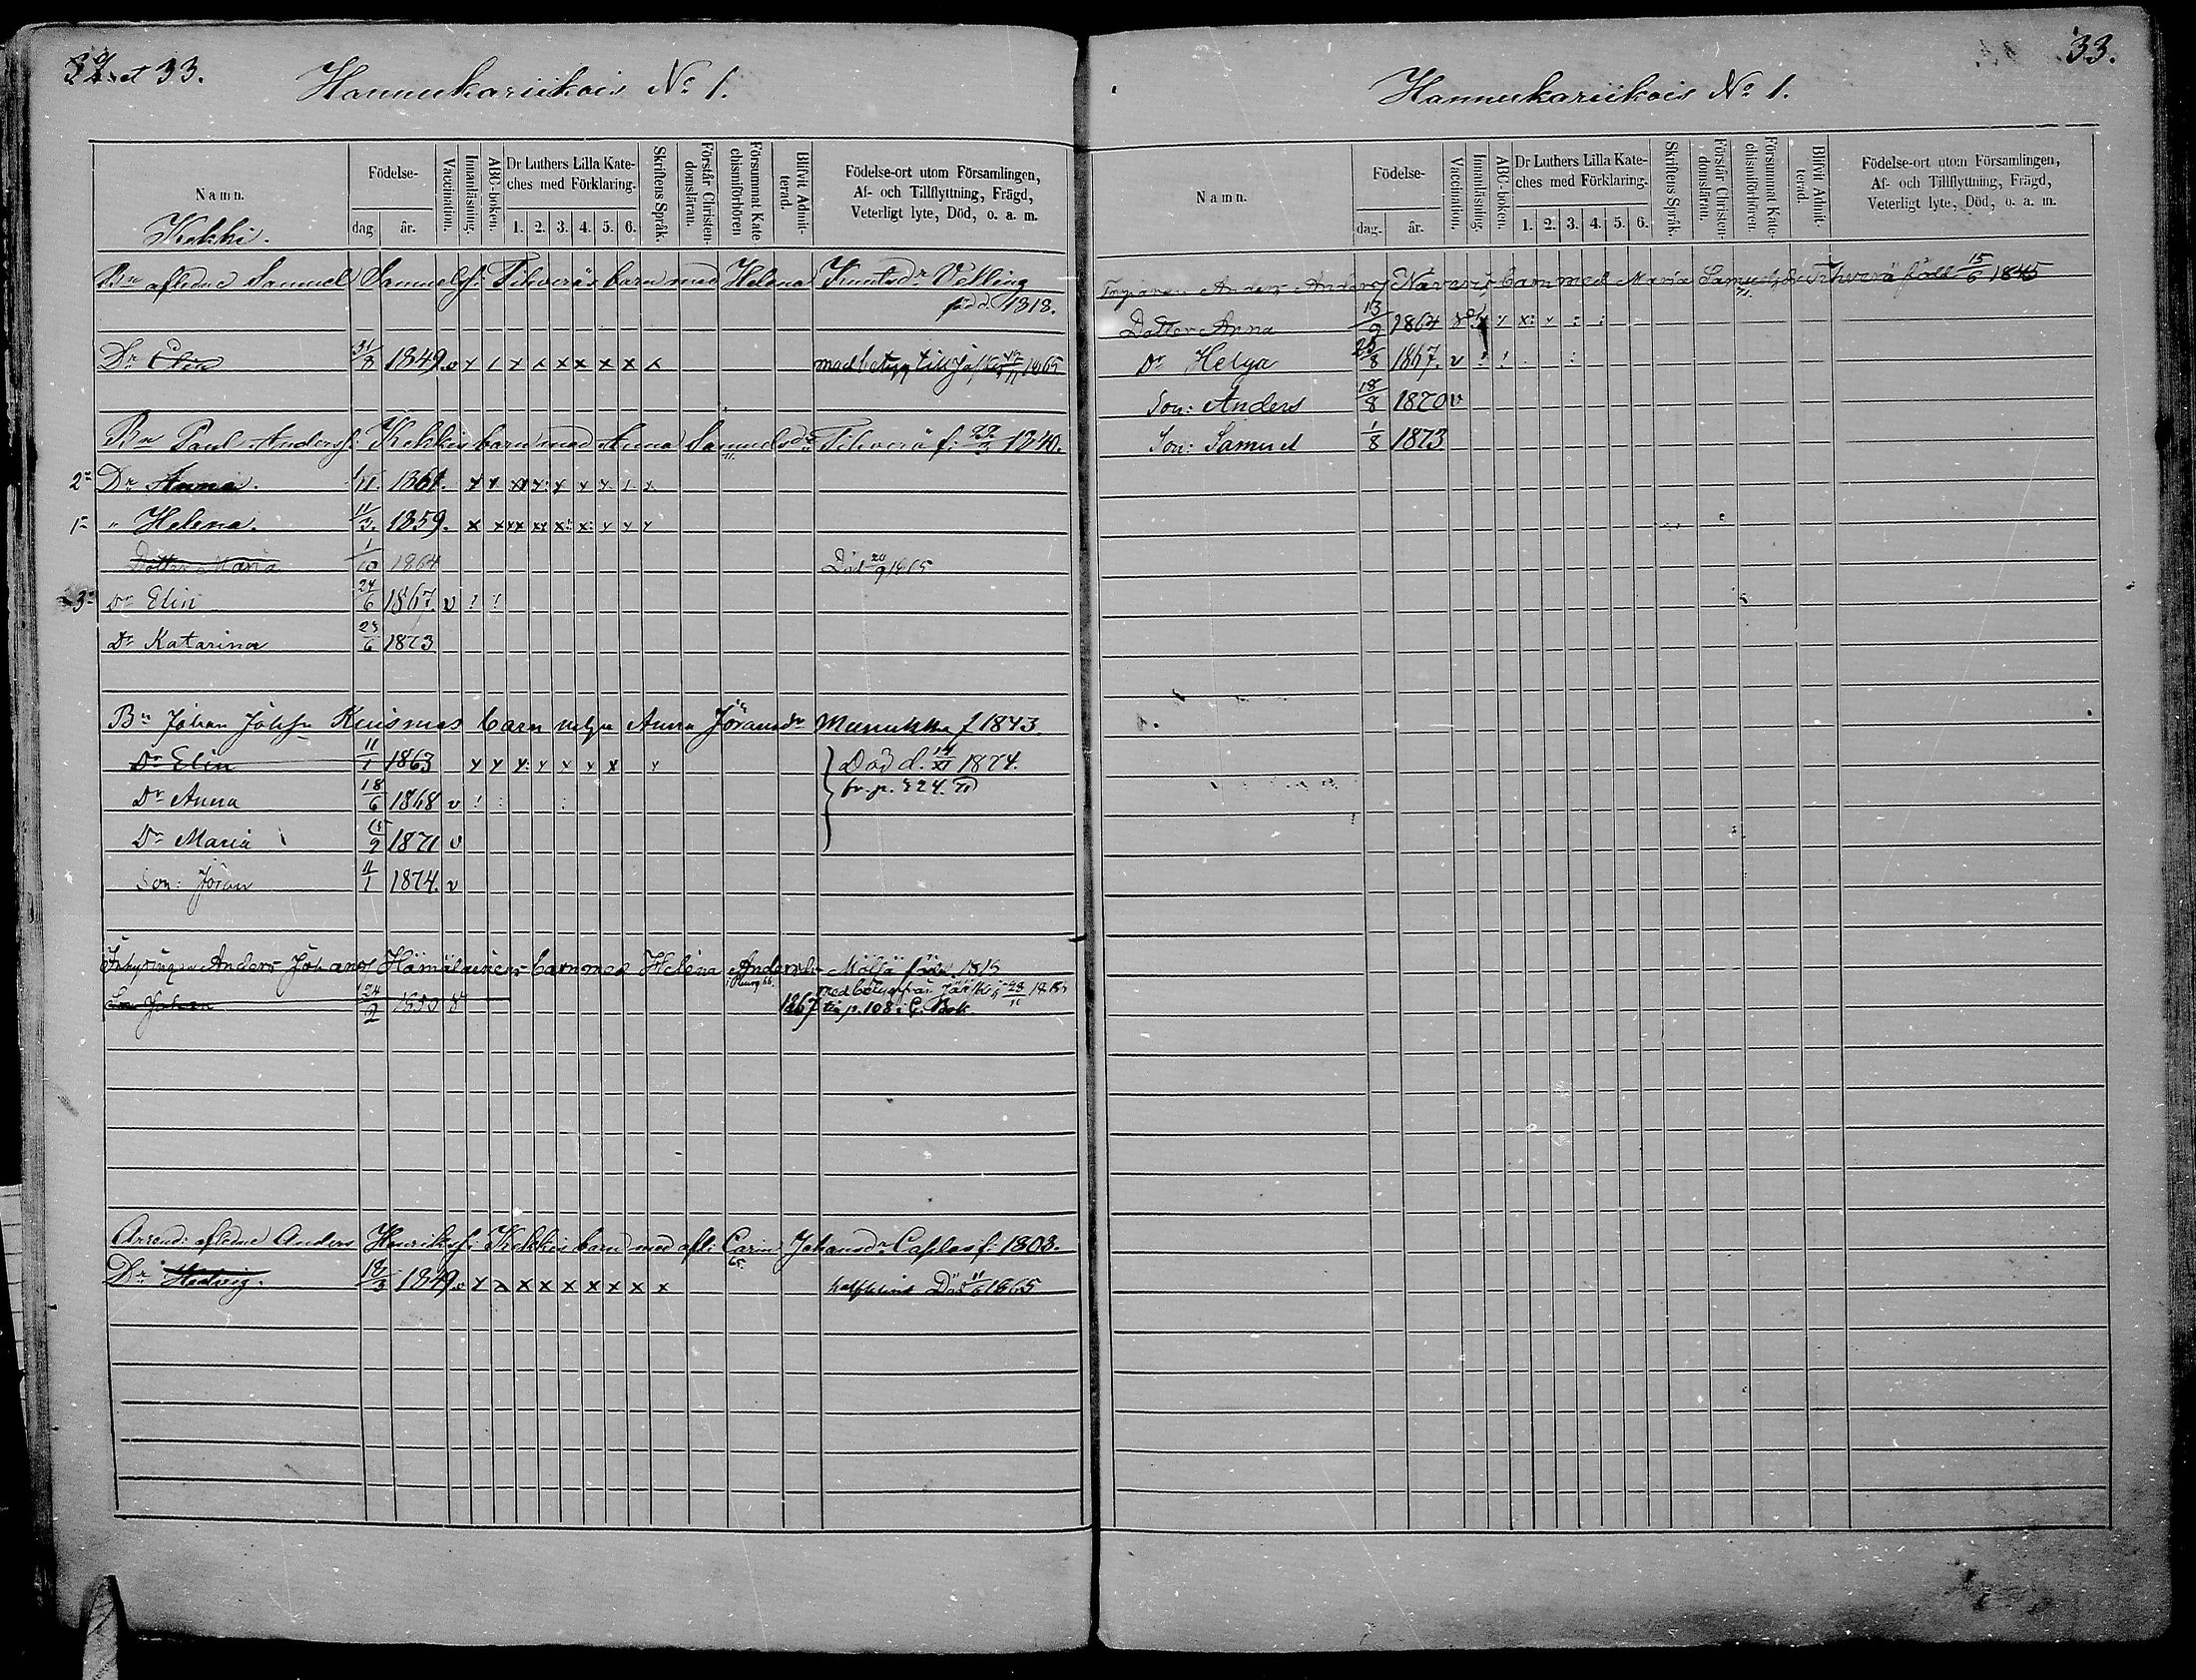 et 33.
Hannukariikois No 1.
Namn.
Kekki.
Födelse-
dag
år.
Vaccination.
Innanläsning.
ABC-boken.
Dr Luthers Lilla Kate-
ches med Förklaring.
1. 2. 3. 4. 5. 6.
Skriftens Språk.
Förstår Christen-
domsläran.
Försummat Kate
chismiförhören
Blifvit Admit-
terad.
Födelse-ort utom Församlingen,
Af- och Tillflyttning, Frägd,
Veterligt lyte, Död, o. a. m.
Bn aflidne Samuel Samuelsf: Tihveräs barn med Helena Velling
född 1818.
Dr Elin 31/8 1849. v x 1 x x x x x x x med betyg till 1865
Bn Paul Andersf: Kekkis barn med Anna Samuelsdr Tihverä f: 1840.
2r Dr Anna. 1861.
1r " Helena. 11/3. 1859.
Dotter Maria 1/10 1864 Död 20/9 1865
3r Dr Elin 24/6 1867. v ! !
Dr Katarina 23/6 1873
Bn Johan Johsn Kuismas barn m. hu Anna Jöransdr Munukka f 1843.
Dr Elin 11/1 1863 Död d. 14/XI 1874.
Dr Anna 18/6 1868 v ! : fr. p. 524.
Dr Maria 15/9 1871 v
Son: Jöran 11/1 1874. v
Inhysing Anders Johans Hämäläinens barn med Helena Andersdr Mölsä född 1815
Son Johan 24/2 1850 med betyg från Jääskis 28/11
1867 till p. 108 i C. Bok
Arrend: aflidne Anders Henriksf: Kekkis barn med afl: Carin Johansdr f: 1803.
65.
Dr Hedvig. 18/3 1849. v x x x x x x x x x Död 11/6 1865
33.
Hannukariikois No 1.
Namn.
Födelse-
dag.
år.
Vaccination.
Innanläsning.
ABC-boken.
Dr Luthers Lilla Kate-
ches med Förklaring.
1. 2. 3. 4. 5. 6.
Skriftens Språk.
Förstår Christen-
domsläran.
Försummat Kate-
chismiförhören.
Blifvit Admit-
terad.
Födelse-ort utom Församlingen,
Af- och Tillflyttning, Frägd,
Veterligt lyte, Död, o. a. m.
Torparen Anders Anders Navaris barn med Maria Samuelsdr Tihverä född 15/6 1845
Dotter Anna 13/9 1864
Dr Helga 26/8 1867. v ! !
Son: Anders 18/8 1870 v
Son: Samuel 1/8 1873